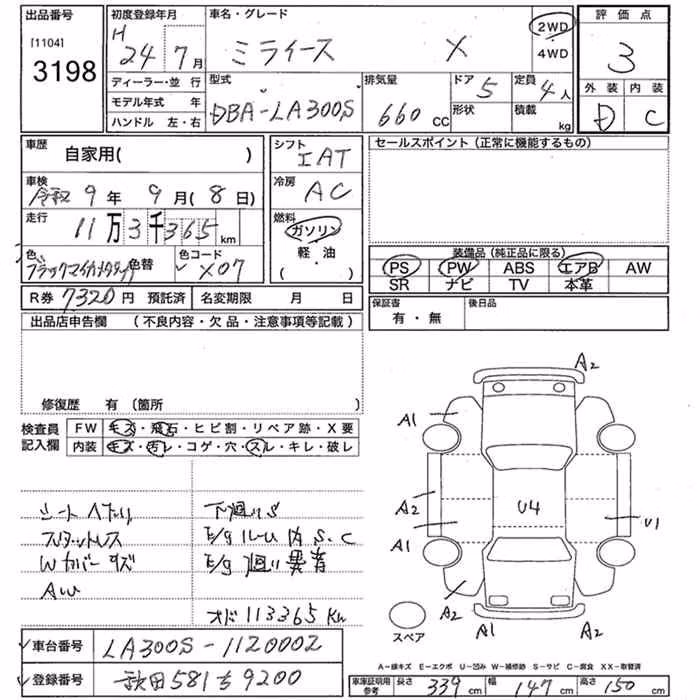 出品番号 初度登録年月 車名・グレード 評価点
[1104] H 24年 7月 ミライース X 2WD 3
3198 4WD
ディーラー・並行 型式 排気量 ドア 5 定員 4人 外装 内装
モデル年式 年 DBA-LA300S 660cc 形状 積載 D C
ハンドル 左・右 kg
車歴 シフト セールスポイント(正常に機能するもの)
自家用( ) IAT
車検 冷房
令和 9年 9月(8日) AC
走行 燃料
11万3千365km ガソリン
色 色替 色コード 軽油 装備品(純正品に限る)
ブラックマイカメタリック X07 ( ) PS PW ABS エアB AW
SR ナビ TV 本革
R券 7320円 預託済 名変期限 月 日 保証書 後日品
有・無
出品店申告欄 (不良内容・欠品・注意事項等記載)
修復歴 有 (箇所
検査員 FW キズ・飛石・ヒビ割・リペア跡・X要
記入欄 内装 キズ・汚レ・コゲ・穴・スレ・キレ・破レ
A2
A1
シートヘタリ 下廻りS
スタットレス E/gルーム内 S.C
Wカバーキズ E/g廻り異音
AW
オド113365Km
U4
A2
A1
U1
A2
A1
A2
スペア
車台番号 LA300S-1120002
登録番号 秋田581ち9200
A-線キズ E-エクボ U-凹み W-補修跡 S-サビ C-腐食 XX-取替済
車庫証明用参考 長さ 339cm 幅 147cm 高さ 150cm